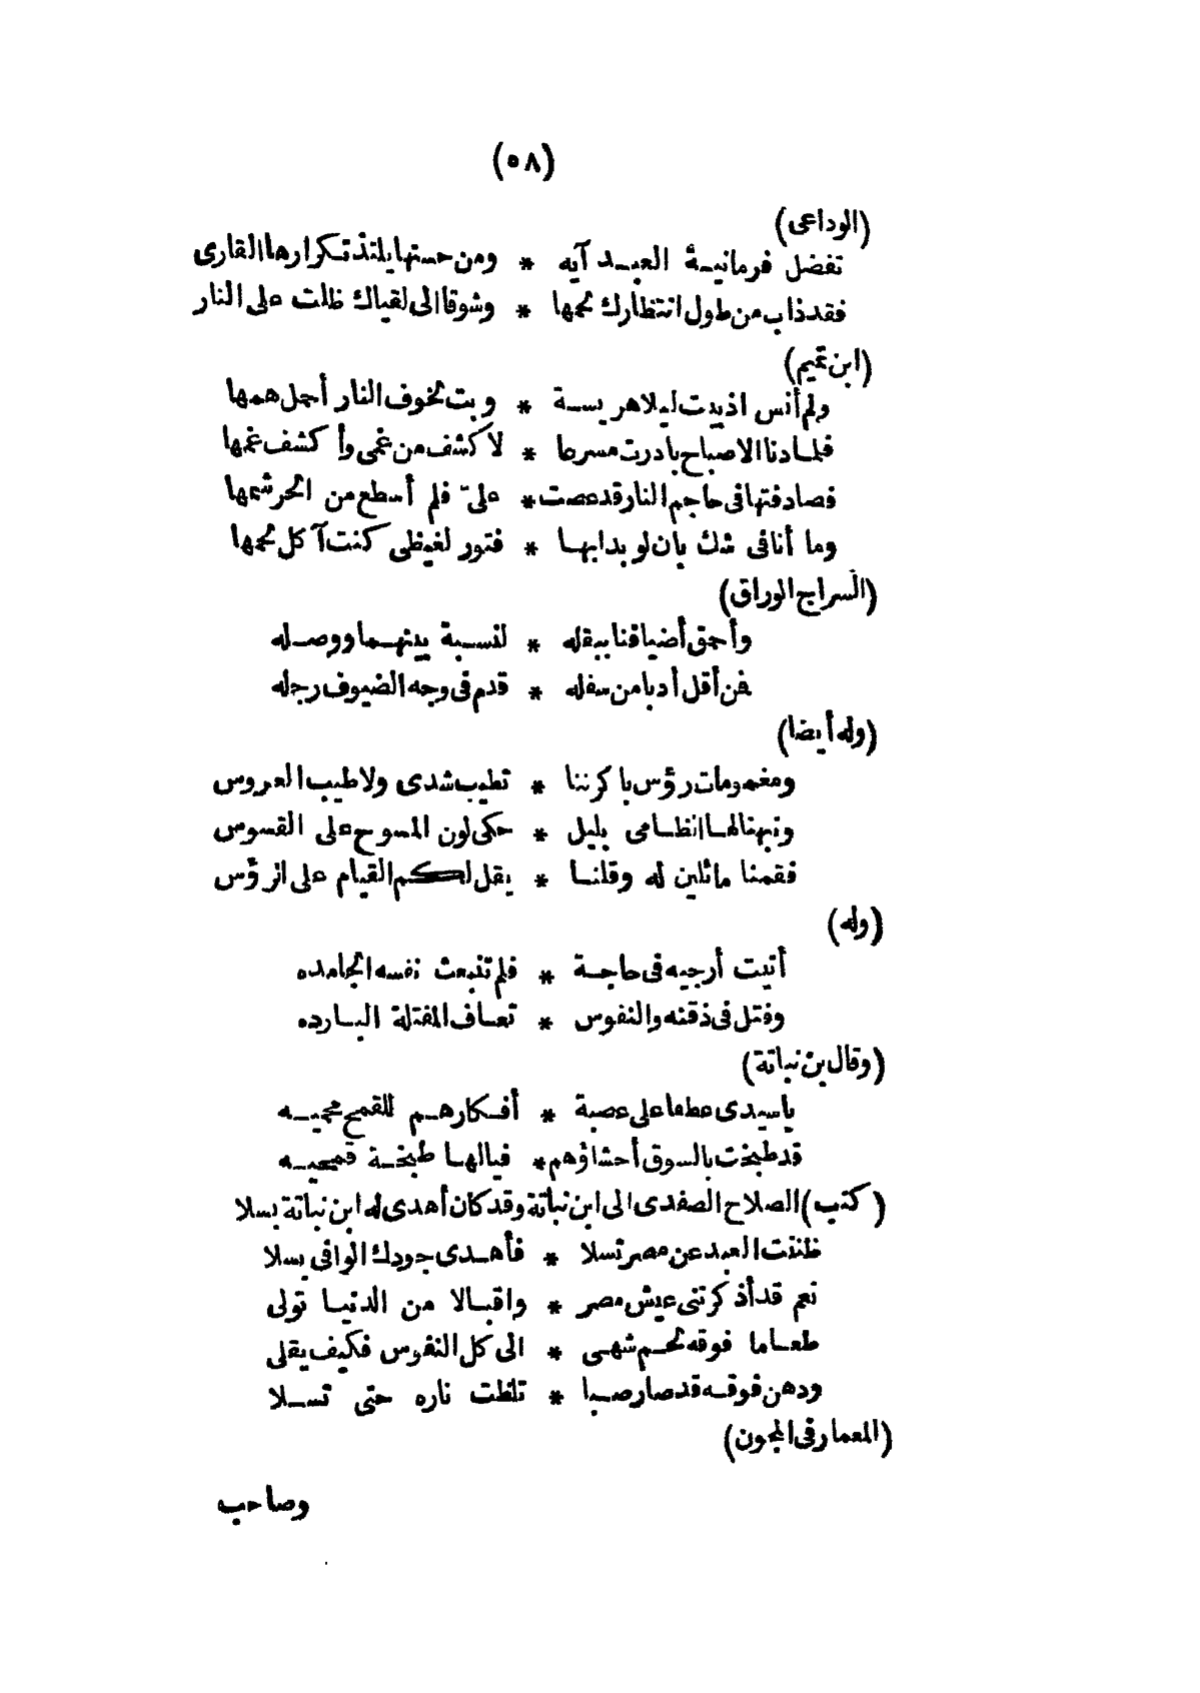 (٥٨)
(الوداعى)
تفضل فرمانيـة العبـد آيه * ومن حسنها يلتذ تـكرارها القارى
فقد ذاب من طول انتظارك لحمها * وشوقا الى لقياك ظلت على النار
(ابن تميم)
ولم أنس اذ بدت ليلا هريسـة * وبت بخوف النار أحمل همها
فلمـا دنا الاصباح بادرت مسرعا * لا كشف من غمى وأكشف غمها
فصادفتها فى حاجم النار قد عصت * علىّ فلم أسطع من الحر شمها
وما أنا فى شك بان لو بدا بهـا * فتور لغيظى كنت آكل لحمها
(السراج الوراق)
وأحمق أضيافنا ببقله * لنسـبة بينهـما ووصـله
فمن أقل أدبا من سفله * قدم فى وجه الضيوف رجله
(وله أيضا)
ومغمومات رؤس باكرننا * تطيب شدى ولا طيب العروس
ونبهنا لهـا انظـامى بليل * حكى لون المسوح على القسوس
فقمنا ماثلين له وقلنـا * يقل لـكم القيام على الرؤس
(وله)
أتيت أرجيه فى حاجـة * فلم تنبعث نفسه الجامده
وفتل فى ذقنه والنفوس * تعـاف المفتلة البـارده
(وقال بن نباتة)
ياسيدى عطفا على عصبة * أفـكارهـم للقمح محميـه
قد طبخت بالسوق أحشاؤهم * فيا لهـا طبخـة قمحيـه
(كتب) الصلاح الصفدى الى ابن نباتة وقد كان أهدى له ابن نباتة بسلا
ظننت العبد عن مصر تسلا * فأهـدى جودك الوافى بسلا
نعم قد أذكرتنى عيش مصر * واقبـالا من الدنيـا تولى
طعـاما فوقه لحـم شهـى * الى كل النفوس فكيف يقلى
ودهن فوقـه قد صار صبـا * تلظت ناره حتى تسـلا
(المعمار فى المجون)
وصاحب